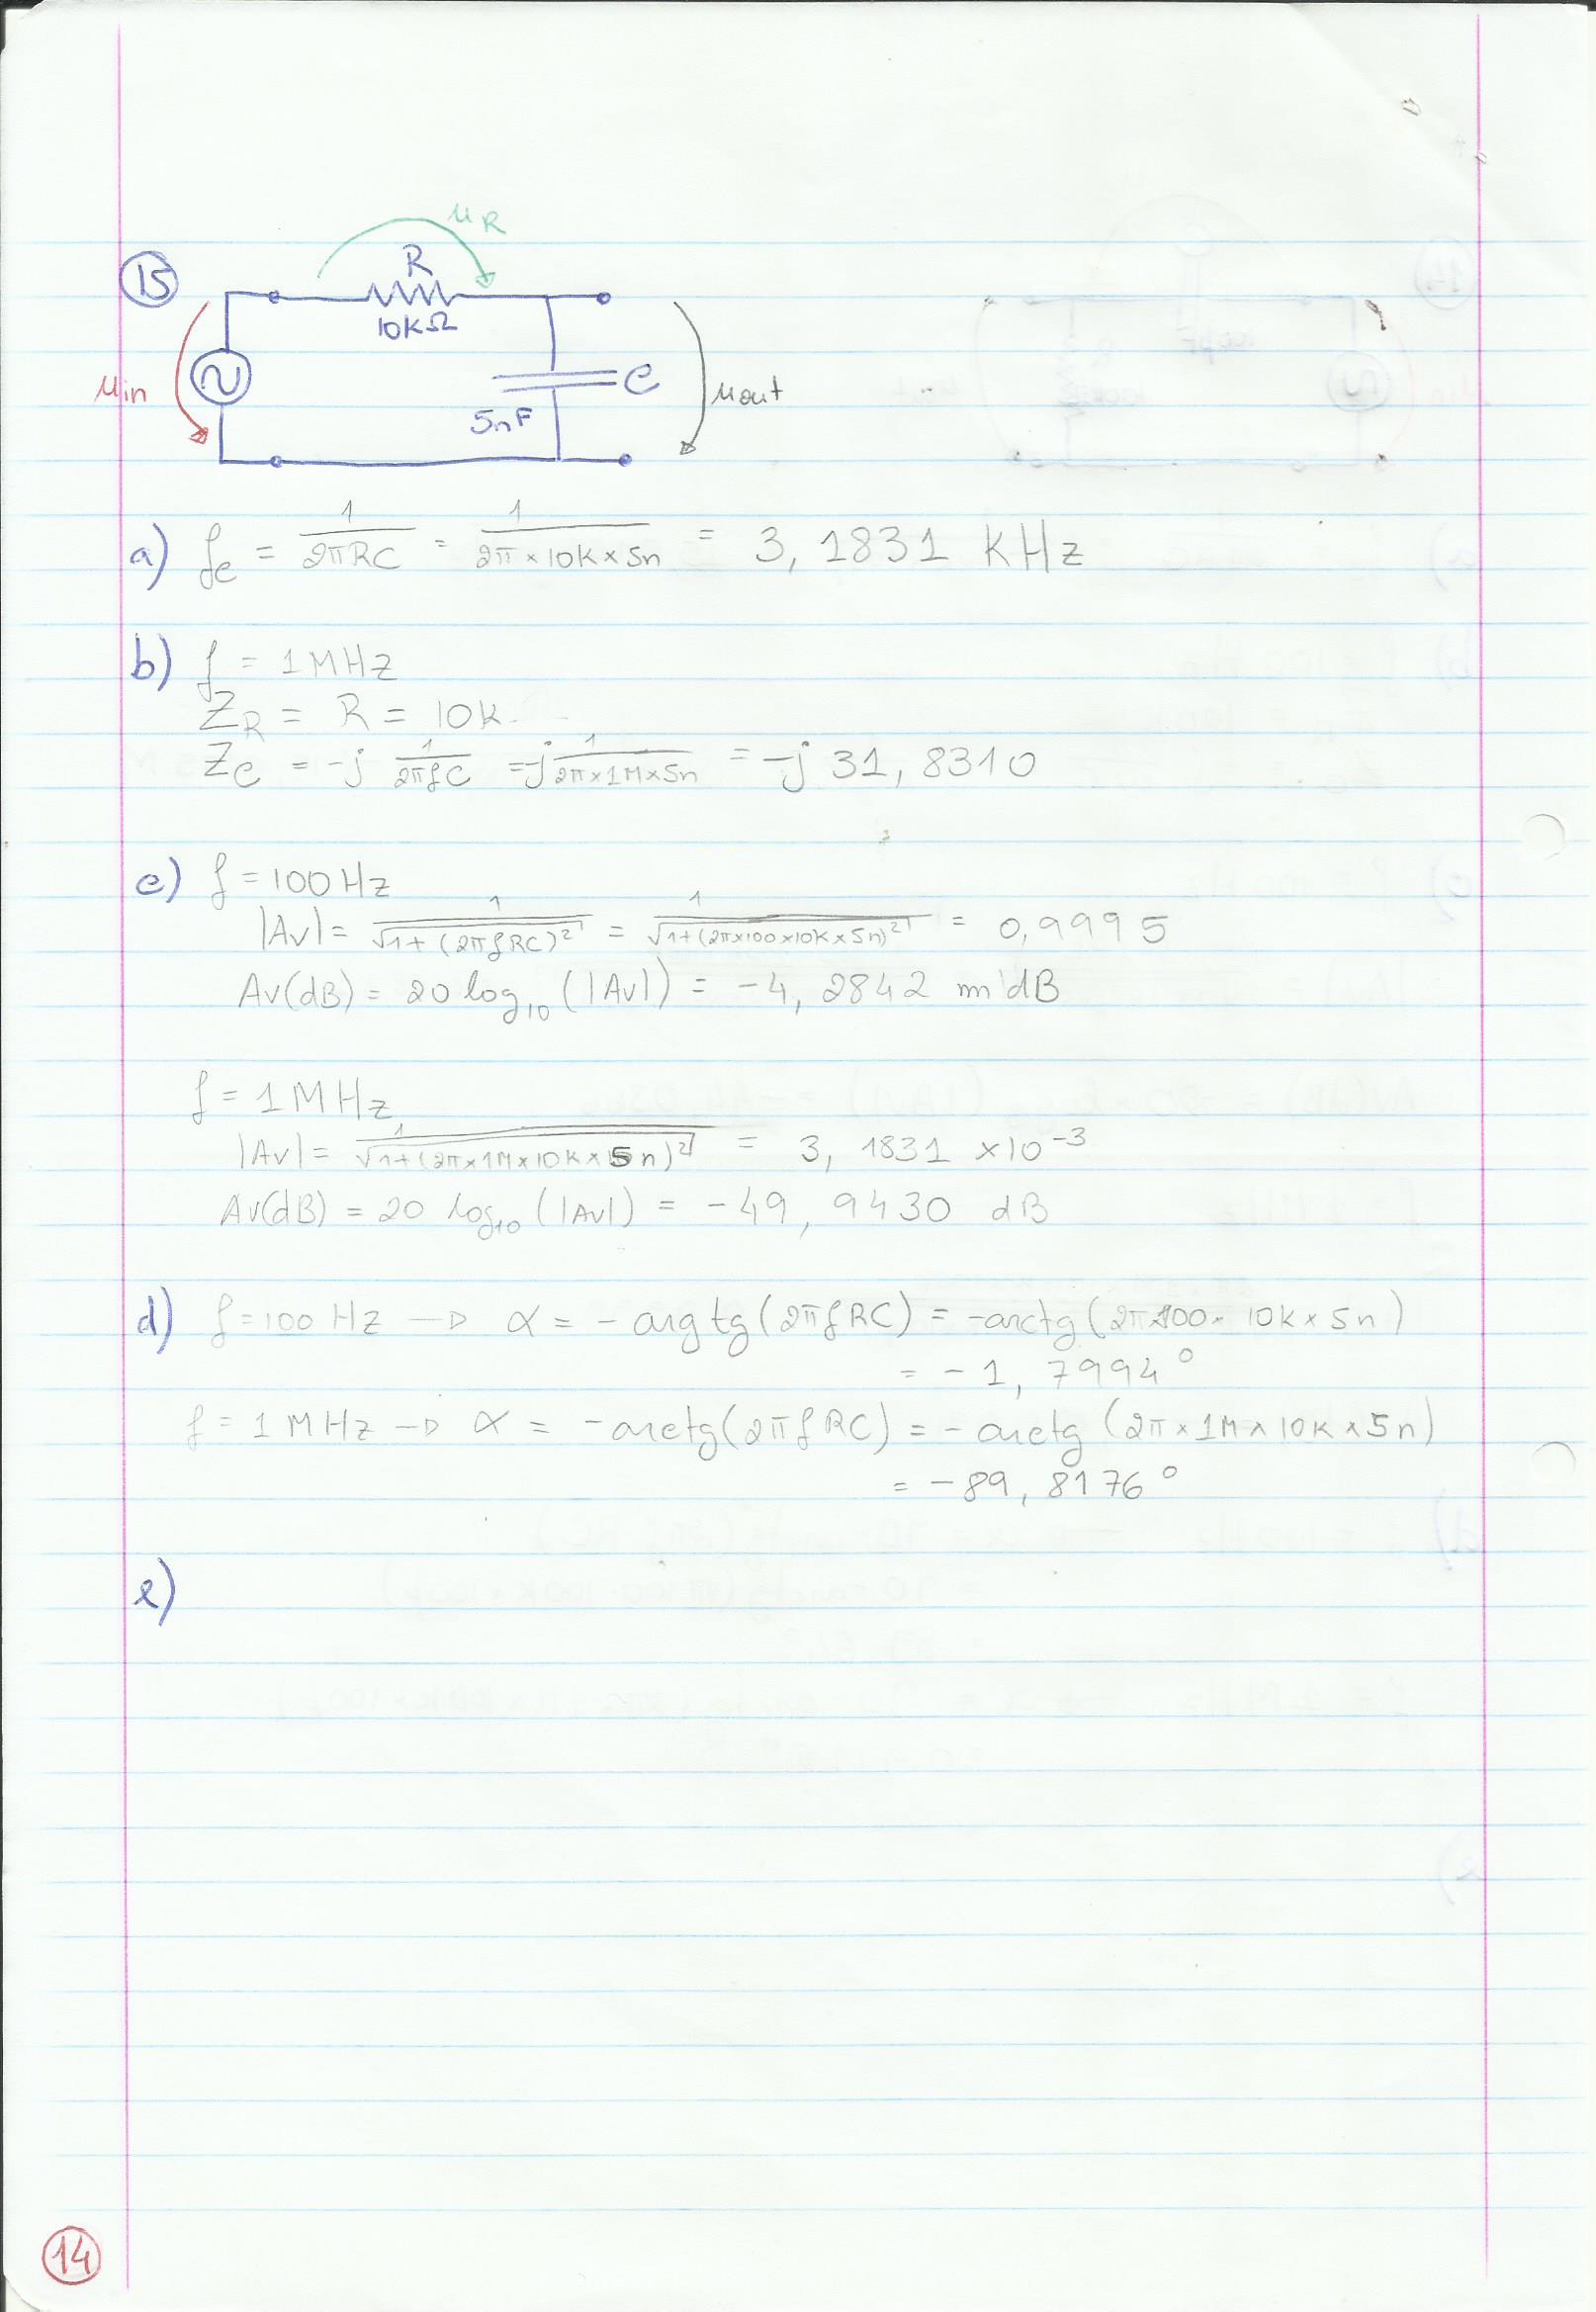 15
μR
R
10kΩ
μin
C
5nF
μout
a) fc = 1/2πRC = 1/2π×10k×5n = 3,1831 KHz
b) f = 1MHz
ZR = R = 10k
Zc = -j 1/2πfC = -j 1/2π×1M×5n = -j 31,8310
c) f = 100Hz
|Av| = 1/√1+(2πfRC)² = 1/√1+(2π×100×10k×5n)² = 0,9995
Av(dB) = 20 log10 (|Av|) = -4,2842 m dB
f = 1MHz
|Av| = 1/√1+(2π×1M×10k×5n)² = 3,1831 ×10⁻³
Av(dB) = 20 log10 (|Av|) = -49,9430 dB
d) f = 100 Hz → α = - arg tg (2πfRC) = -arctg (2π×100× 10k×5n)
= -1,7994°
f = 1MHz → α = -arctg(2πfRC) = - arctg (2π×1M×10k×5n)
= -89,8176°
e)
14